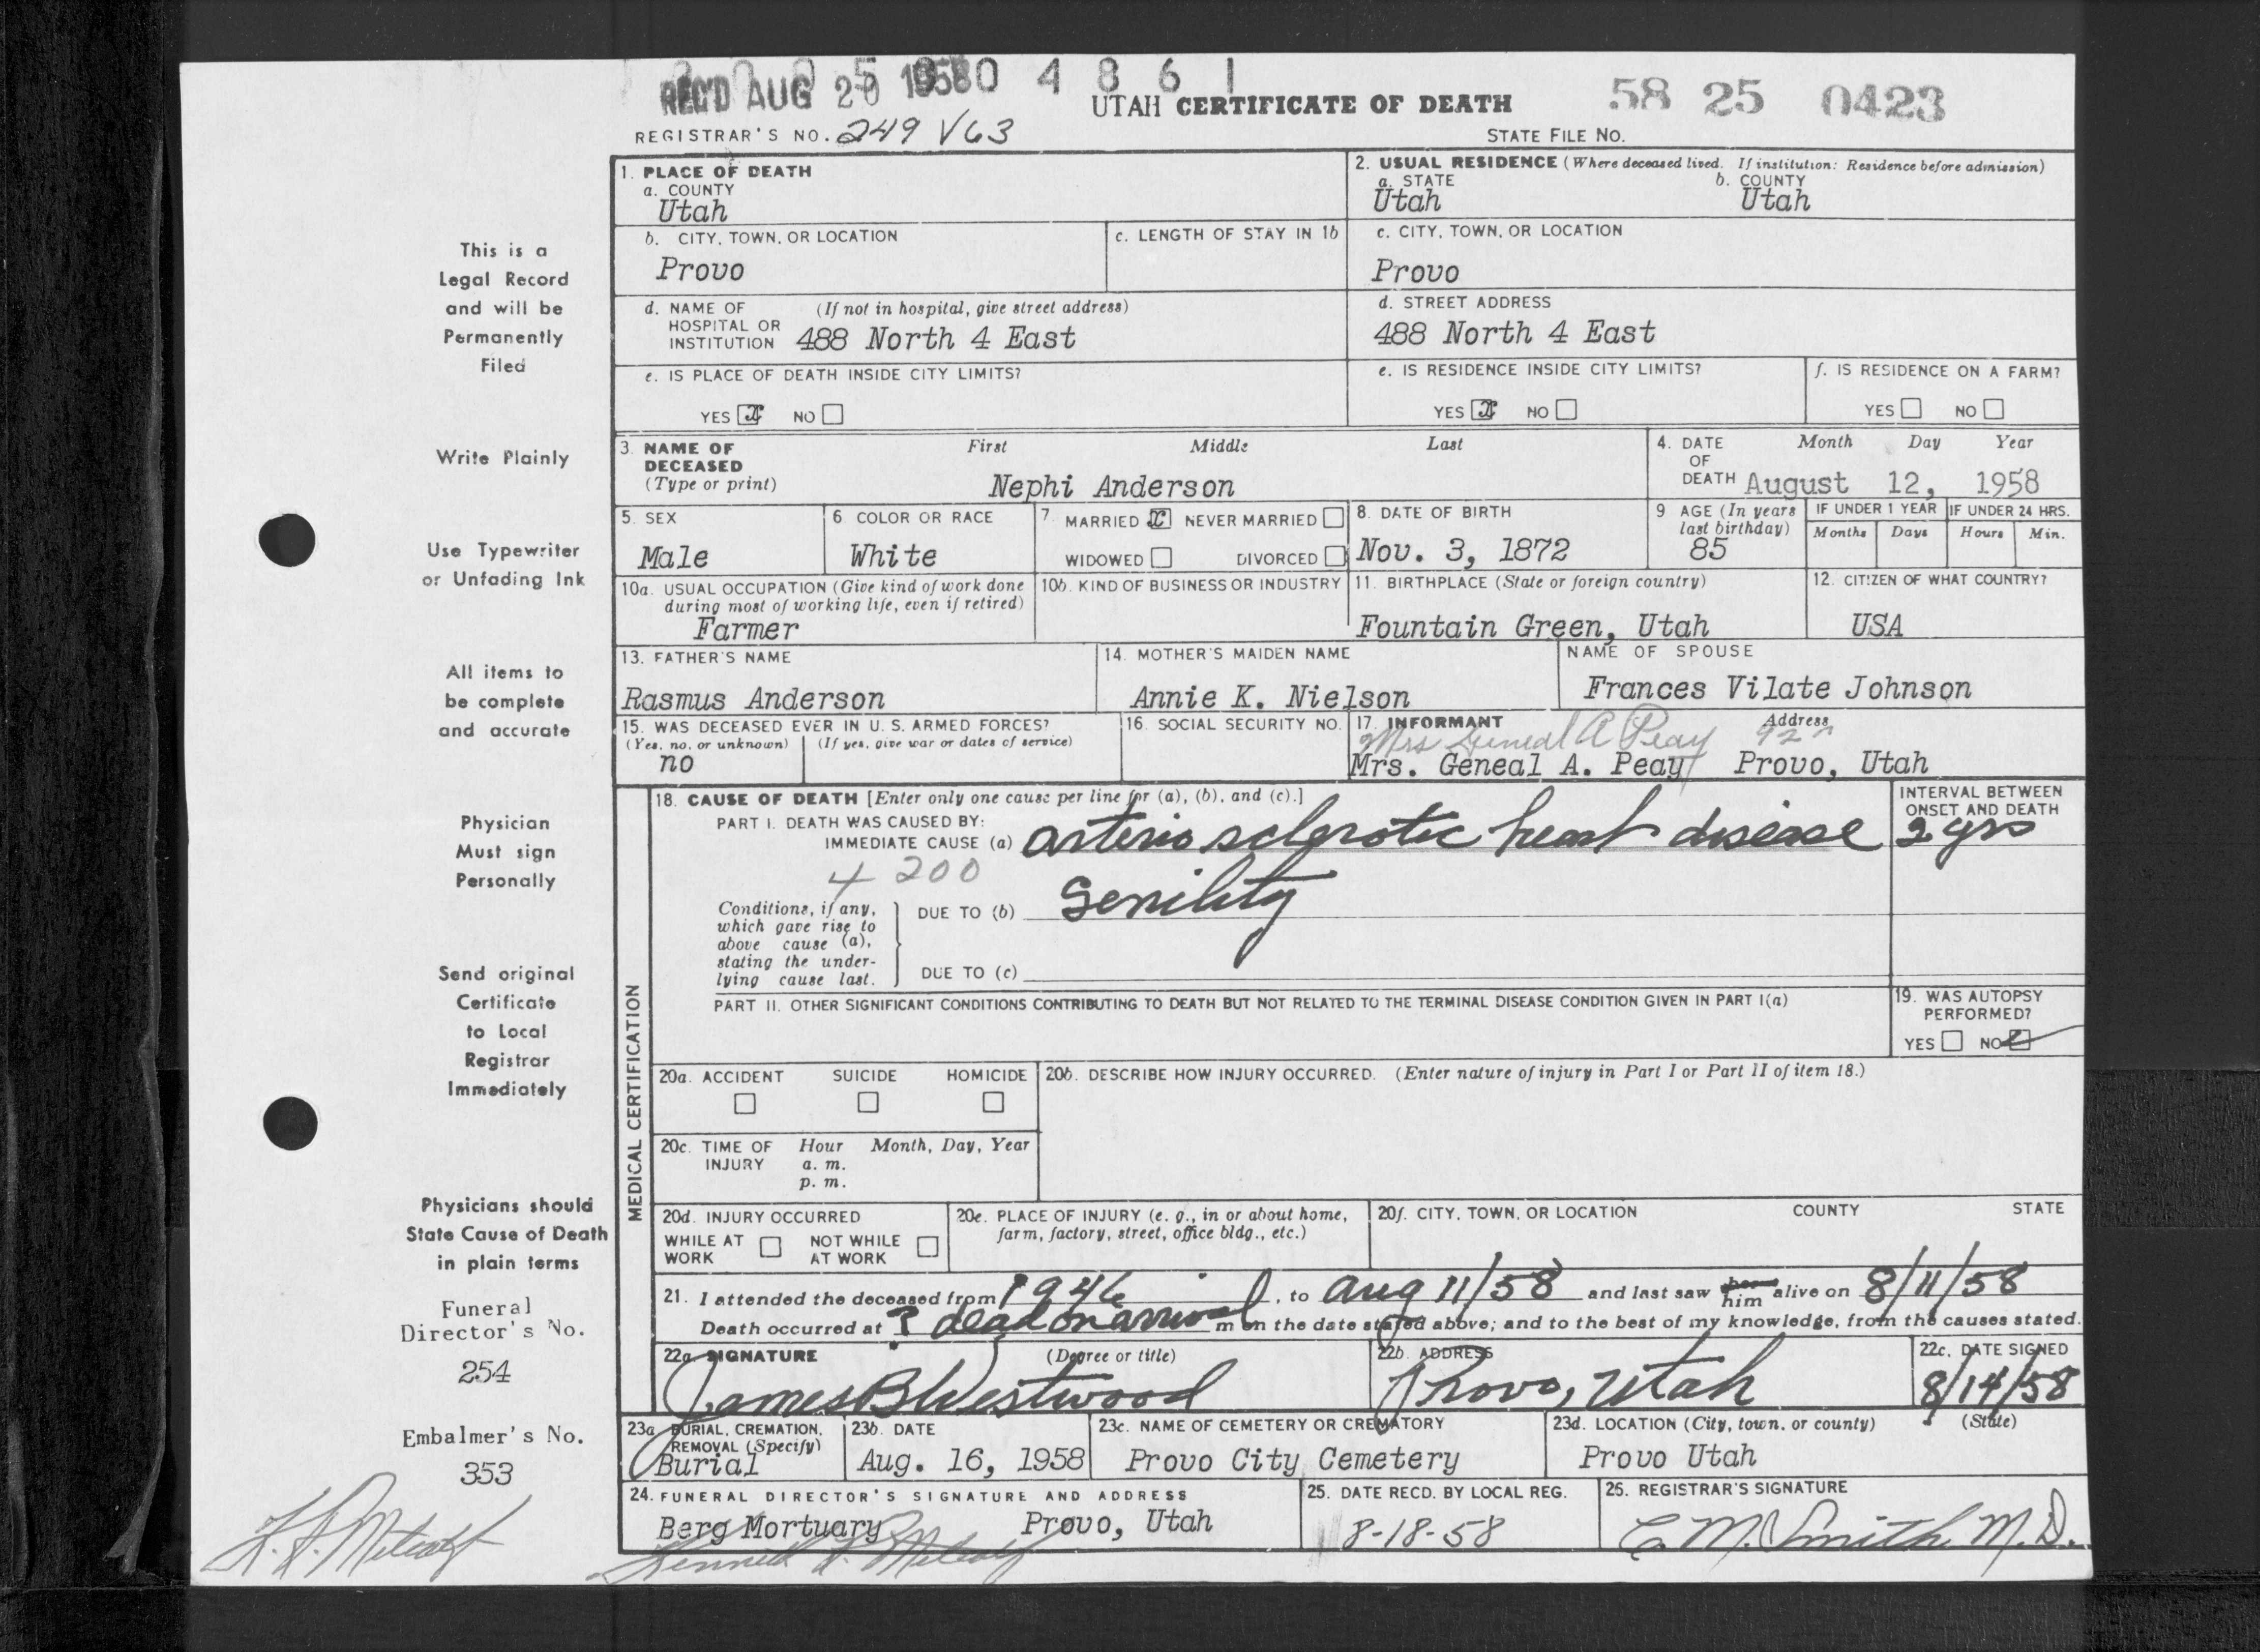 REC'D AUG 20 1958 0 4 8 6 1
UTAH CERTIFICATE OF DEATH
58 25 0423
REGISTRAR'S NO. 249 V63
STATE FILE NO.
This is a
Legal Record
and will be
Permanently
Filed
Write Plainly
Use Typewriter
or Unfading Ink
All items to
be complete
and accurate
Physician
Must sign
Personally
Send original
Certificate
to Local
Registrar
Immediately
Physicians should
State Cause of Death
in plain terms
Funeral
Director's No.
254
Embalmer's No.
353
1. PLACE OF DEATH
a. COUNTY
Utah
2. USUAL RESIDENCE (Where deceased lived. If institution: Residence before admission)
a. STATE b. COUNTY
Utah Utah
b. CITY, TOWN, OR LOCATION
Provo
c. LENGTH OF STAY IN 1b
c. CITY, TOWN, OR LOCATION
Provo
d. NAME OF (If not in hospital, give street address)
HOSPITAL OR
INSTITUTION 488 North 4 East
d. STREET ADDRESS
488 North 4 East
e. IS PLACE OF DEATH INSIDE CITY LIMITS?
YES X NO
e. IS RESIDENCE INSIDE CITY LIMITS?
YES X NO
f. IS RESIDENCE ON A FARM?
YES NO
3. NAME OF First Middle Last
DECEASED
(Type or print) Nephi Anderson
4. DATE Month Day Year
OF
DEATH August 12, 1958
5. SEX
Male
6 COLOR OR RACE
White
7. MARRIED X NEVER MARRIED
WIDOWED DIVORCED
8. DATE OF BIRTH
Nov. 3, 1872
9 AGE (In years
last birthday)
85
IF UNDER 1 YEAR
Months Days
IF UNDER 24 HRS.
Hours Min.
10a. USUAL OCCUPATION (Give kind of work done
during most of working life, even if retired)
Farmer
10b. KIND OF BUSINESS OR INDUSTRY
11. BIRTHPLACE (State or foreign country)
Fountain Green, Utah
12. CITIZEN OF WHAT COUNTRY?
USA
13. FATHER'S NAME
Rasmus Anderson
14. MOTHER'S MAIDEN NAME
Annie K. Nielson
NAME OF SPOUSE
Frances Vilate Johnson
15. WAS DECEASED EVER IN U. S. ARMED FORCES?
(Yes, no, or unknown) (If yes, give war or dates of service)
no
16. SOCIAL SECURITY NO.
17. INFORMANT Address
Mrs Geneal A Peay
Mrs. Geneal A. Peay Provo, Utah
MEDICAL CERTIFICATION
18. CAUSE OF DEATH [Enter only one cause per line for (a), (b), and (c).]
PART I. DEATH WAS CAUSED BY:
IMMEDIATE CAUSE (a) arterio sclerotic heart disease
INTERVAL BETWEEN
ONSET AND DEATH
2 yrs
4 200
Conditions, if any,
which gave rise to
above cause (a),
stating the under-
lying cause last.
DUE TO (b) Senility
DUE TO (c)
PART II. OTHER SIGNIFICANT CONDITIONS CONTRIBUTING TO DEATH BUT NOT RELATED TO THE TERMINAL DISEASE CONDITION GIVEN IN PART I(a)
19. WAS AUTOPSY
PERFORMED?
YES NO
20a. ACCIDENT SUICIDE HOMICIDE
20b. DESCRIBE HOW INJURY OCCURRED. (Enter nature of injury in Part I or Part II of item 18.)
20c. TIME OF Hour Month, Day, Year
INJURY a. m.
p. m.
20d. INJURY OCCURRED
WHILE AT NOT WHILE
WORK AT WORK
20e. PLACE OF INJURY (e. g., in or about home,
farm, factory, street, office bldg., etc.)
20f. CITY, TOWN, OR LOCATION COUNTY STATE
21. I attended the deceased from 1946, to Aug 11/58 and last saw her him alive on 8/11/58
Death occurred at ? dead on arrival m on the date stated above; and to the best of my knowledge, from the causes stated.
22a. SIGNATURE (Degree or title)
James B Westwood
22b. ADDRESS
Provo, Utah
22c. DATE SIGNED
8/14/58
23a BURIAL, CREMATION,
REMOVAL (Specify)
Burial
23b. DATE
Aug. 16, 1958
23c. NAME OF CEMETERY OR CREMATORY
Provo City Cemetery
23d. LOCATION (City, town, or county) (State)
Provo Utah
24. FUNERAL DIRECTOR'S SIGNATURE AND ADDRESS
Berg Mortuary Provo, Utah
Kenneth F. Metcalf
25. DATE RECD. BY LOCAL REG.
8-18-58
26. REGISTRAR'S SIGNATURE
C. M. Smith, M.D.
K. F. Metcalf